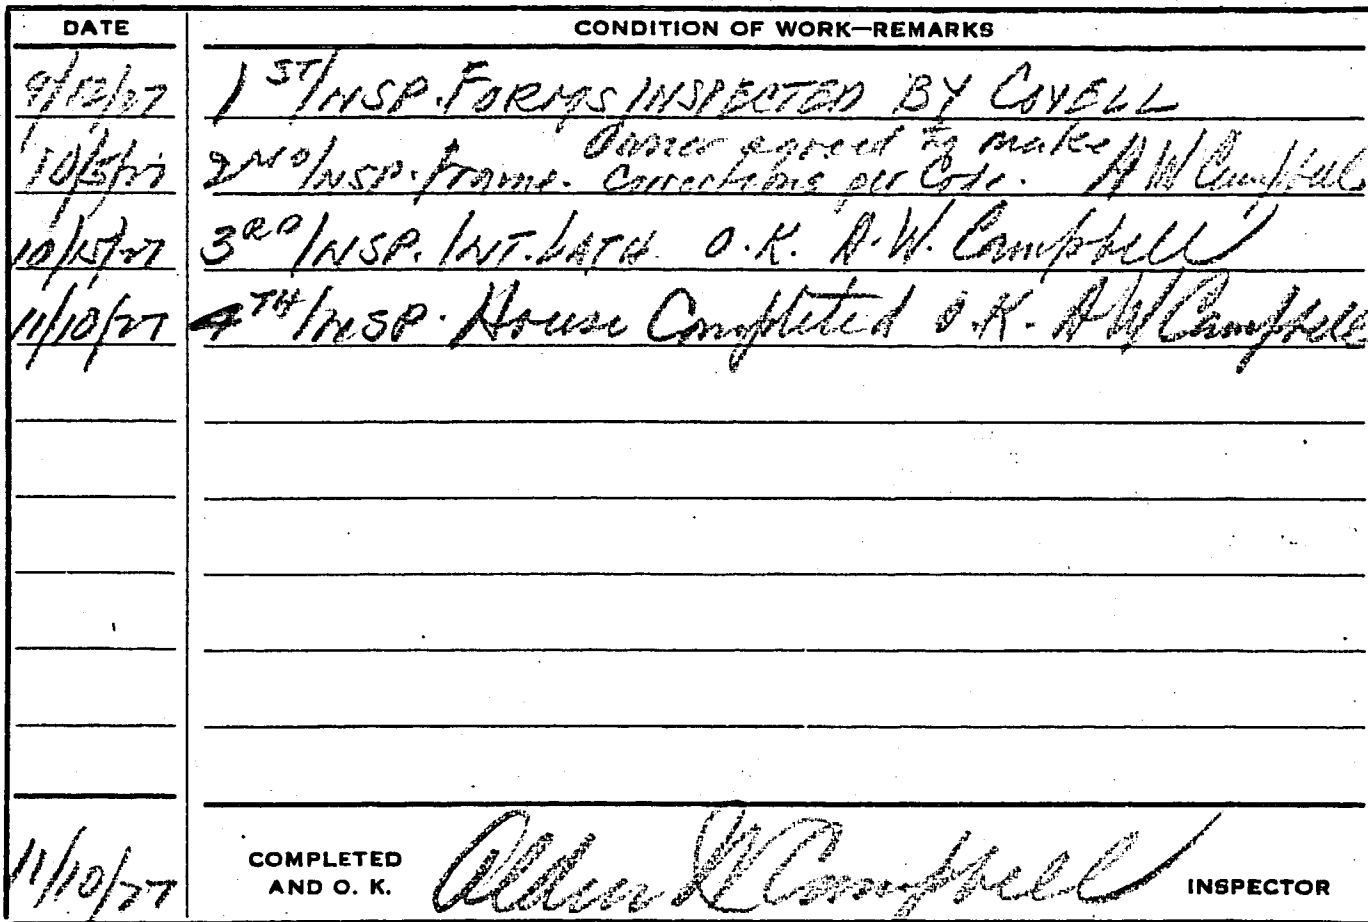 DATE CONDITION OF WORK—REMARKS
9/12/27 1ST INSP. FORMS INSPECTED BY COVELL
Owner agreed to make
10/5/27 2ND INSP. Frame. Corrections per Code. A W Campbell
10/15/27 3RD INSP. INT. LATH O.K. A.W. Campbell
11/10/27 4TH INSP. House Completed O.K. A W Campbell
11/10/27 COMPLETED AND O. K. Alden W Campbell INSPECTOR